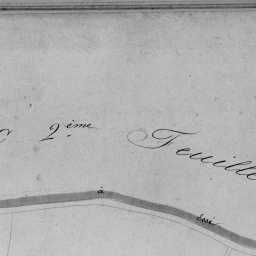 2ème Feuille
à